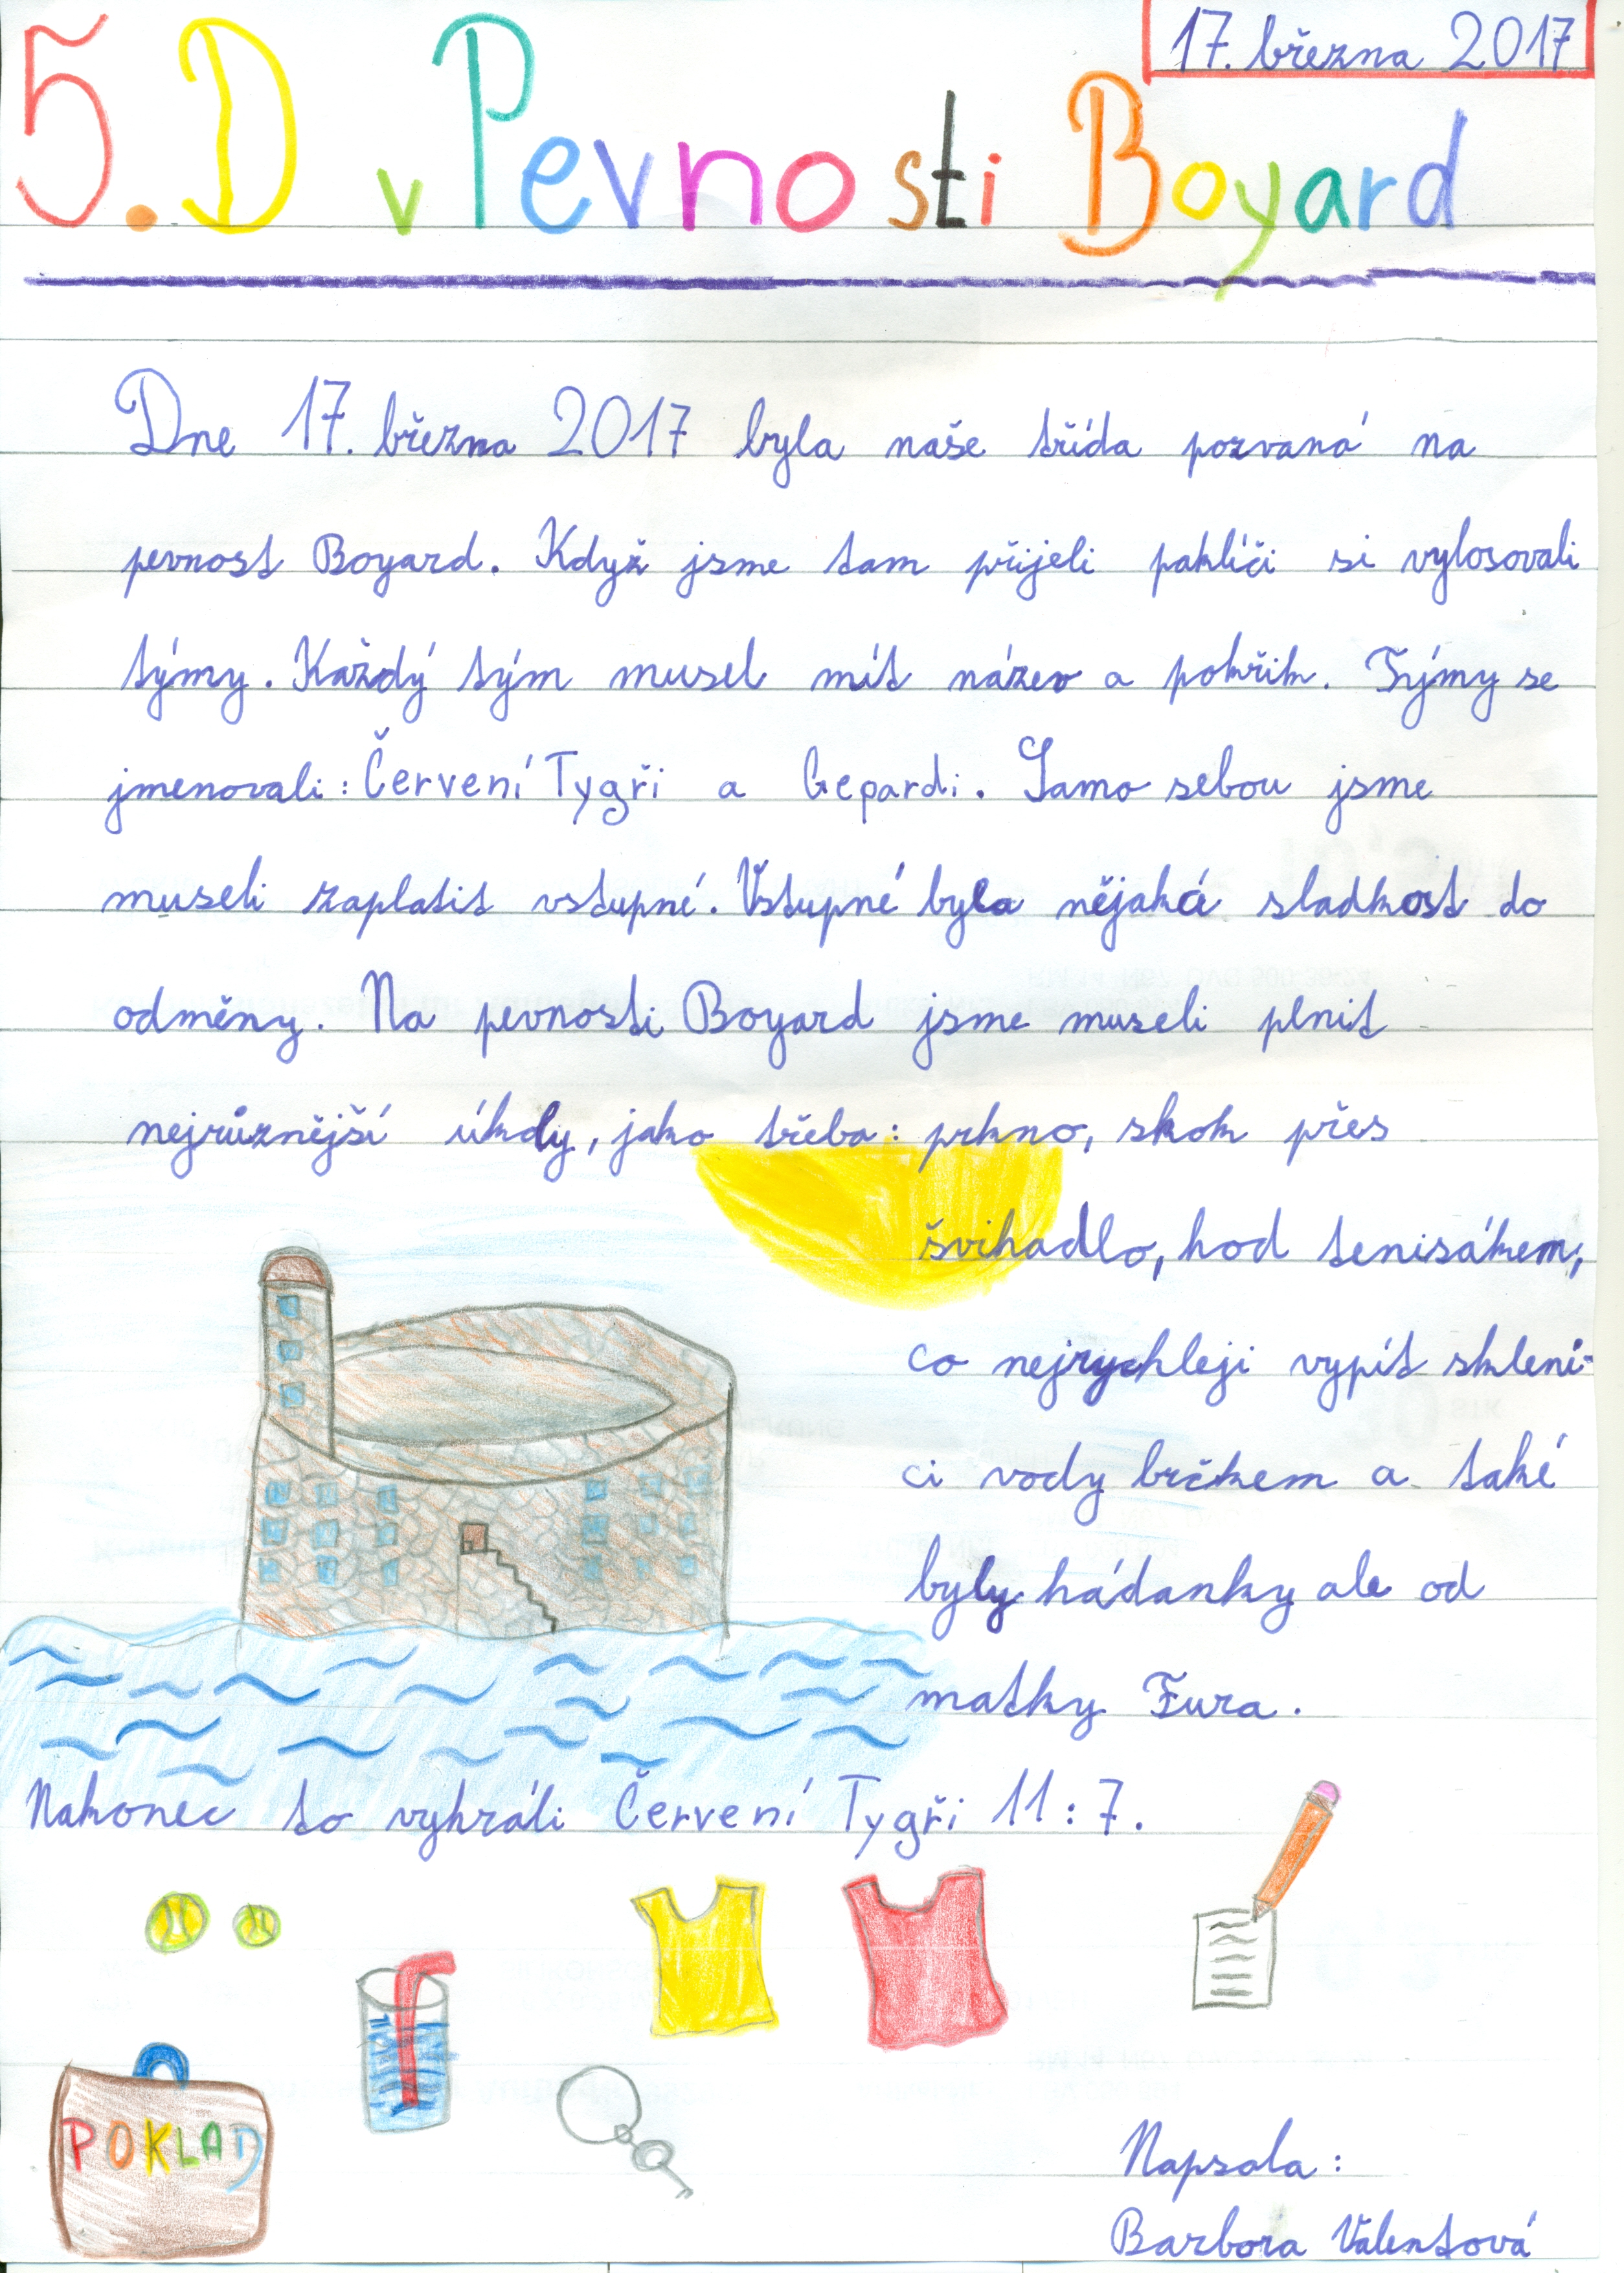 17. března 2017
5.D v Pevnosti Boyard
Dne 17. března 2017 byla naše třída pozvaná na
pevnost Boyard. Když jsme tam přijeli pakliči si vylosovali
týmy. Každý tým musel mít název a pokřik. Týmy se
jmenovali: Červení Tygři a Gepardi. Samo sebou jsme
museli zaplatit vstupné. Vstupné byla nějaká sladkost do
odměny. Na pevnosti Boyard jsme museli plnit
nejrůznější úkoly, jako třeba: prkno, skok přes
švihadlo, hod tenisákem,
co nejrychleji vypít skleni-
ci vody brčkem a také
byly hádanky ale od
matky Fura.
Nakonec to vyhráli Červení Tygři 11:7.
POKLAD
Napsala:
Barbora Valentová